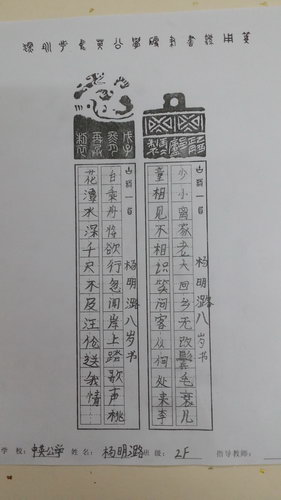 古诗一首 杨明潞八岁书
少小离家老大回乡无改鬓毛衰儿
童相见不相识笑问客从何处来李
古诗一首 杨明潞八岁书
白乘舟将欲行忽闻岸上踏歌声桃
花潭水深千尺不及汪伦送我情
学 校: 中英公学 姓名: 杨明潞 班 级: 2F 指导教师: